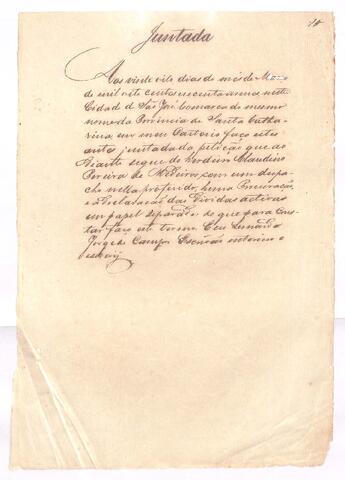 Juntada
Aos vinte oito dias do mes de
de mil oito centos secenta annos, nesta
Cidade de São José comarca do mesmo
nome da Provincia de Santa Catha-
rina, em meu Cartorio faço estes
autos juntada da petição que ao
diante segue do herdeiro Claudino
Pereira de Medeiros, com um despa-
cho nella proferido, huma Procuração
e a Declaração das Dividas activas
em papel separado de que para Cons-
tar faço este termo. Eu Leonardo
Jorge de Campos Escrivão interino o
escrevy